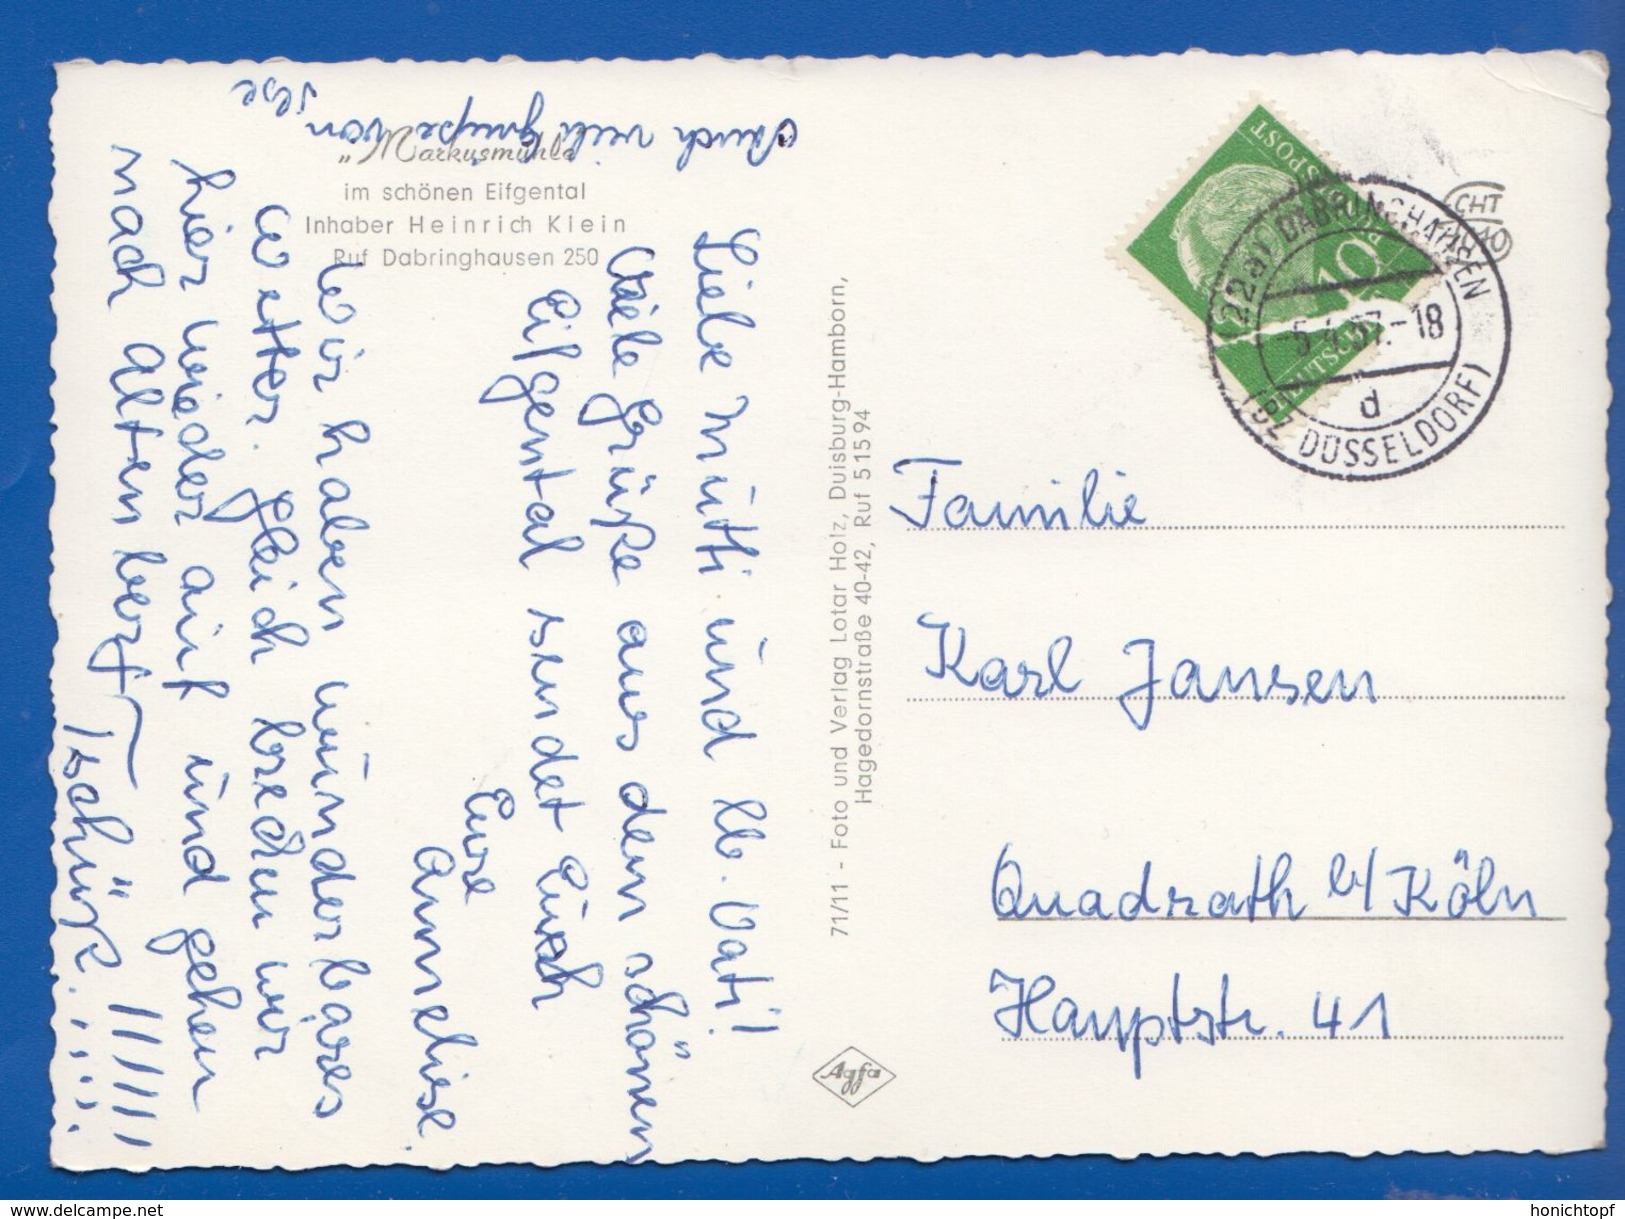 „Markusmühle"
im schönen Eifgental
Inhaber Heinrich Klein
Ruf Dabringhausen 250
Liebe Mutti und lb. Vati!
Viele Grüße aus dem schönen
Eifgental sendet Euch
Eure
Annneliese.
Wir haben wunderbares
Wetter. gleich brechen wir
hier wieder auf und gehen
nach Altenberg
Tschüß. !!!!!
Auch viele Grüße von
Ilse
71/11 - Foto und Verlag Lotar Holz, Duisburg-Hamborn,
Hagedornstraße 40-42, Ruf 51594
Agfa
DEUTSCHE BUNDESPOST
10
22a DABRINGHAUSEN
-5.4.57.-18
d
(BZ DÜSSELDORF)
Familie
Karl Jansen
Quadrath b/Köln
Hauptstr. 41
delcampe.net
honichtopf